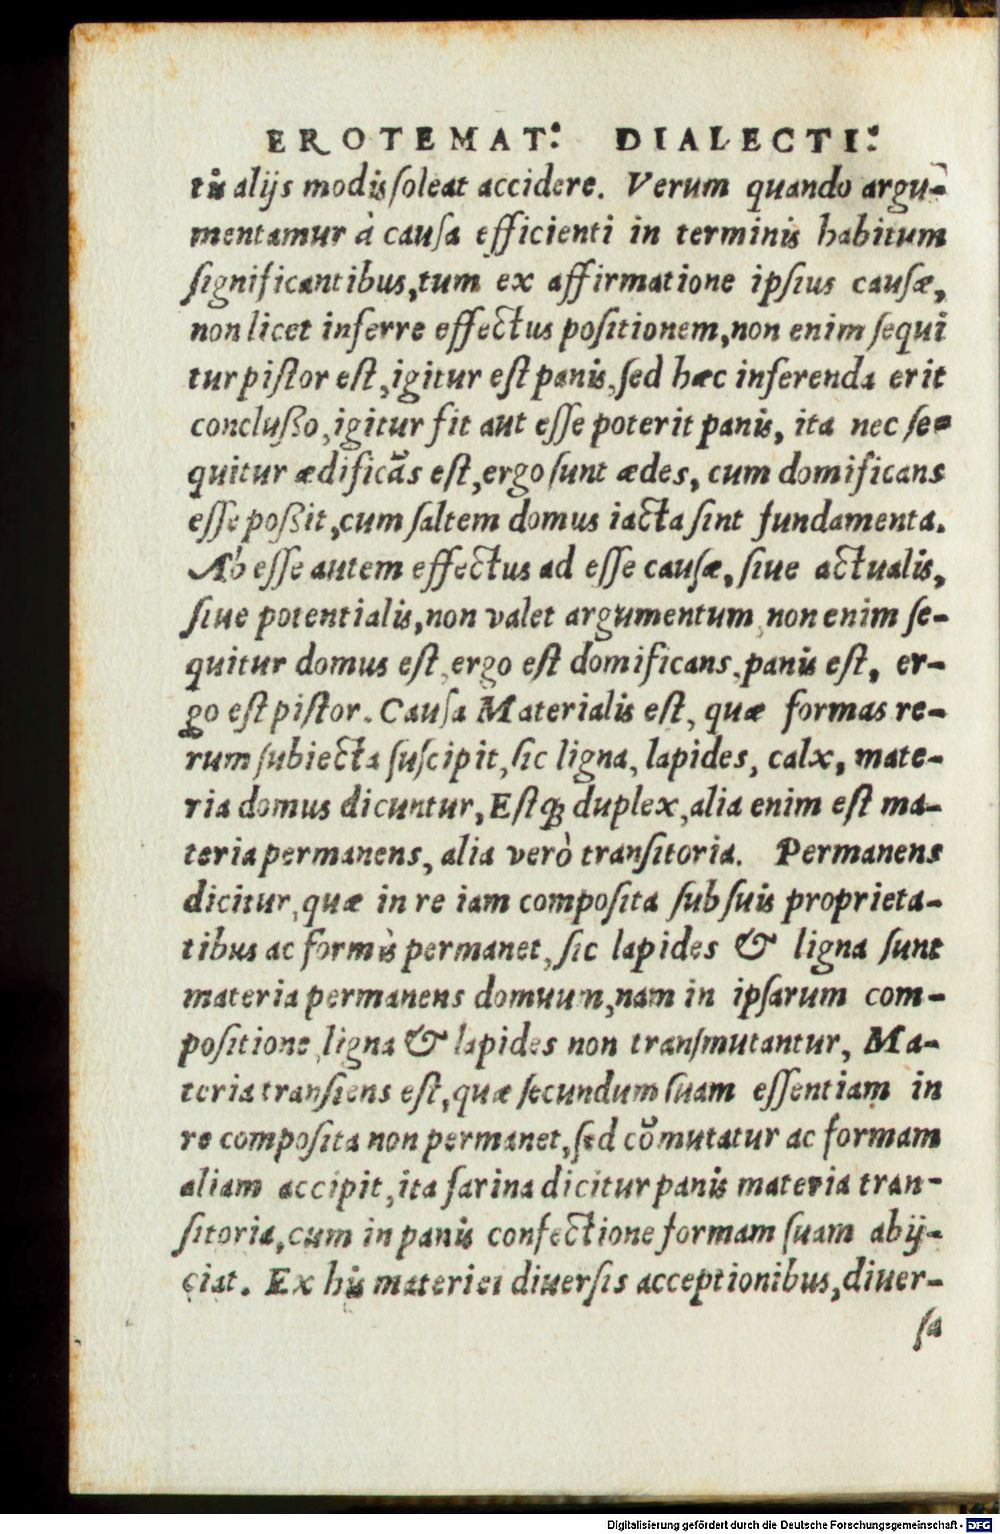 EROTEMAT: DIALECTI:
tis alijs modis ſoleat accidere. Verum quando argu-
mentamur à cauſa efficienti in terminis habitum
ſignificantibus, tum ex affirmatione ipſius cauſæ,
non licet inferre effectus poſitionem, non enim ſequi
tur piſtor eſt, igitur eſt panis, ſed hæc inferenda erit
concluſßo, igitur fit aut eſſe poterit panis, ita nec ſe-
quitur ædificãs eſt, ergo ſunt ædes, cum domificans
eſſe poßit, cum ſaltem domus iacta ſint fundamenta.
Ab eſſe autem effectus ad eſſe cauſæ, ſiue actualis,
ſiue potentialis, non valet argumentum, non enim ſe-
quitur domus eſt, ergo eſt domificans, panis eſt, er-
go eſt piſtor. Cauſa Materialis eſt, quæ formas re-
rum ſubiecta ſuſcipit, ſic ligna, lapides, calx, mate-
ria domus dicuntur, Eſtq; duplex, alia enim eſt ma-
teria permanens, alia verò tranſitoria. Permanens
dicitur, quæ in re iam compoſita ſub ſuis proprieta-
tibus ac formis permanet, ſic lapides & ligna ſunt
materia permanens domuum, nam in ipſarum com-
poſitione, ligna & lapides non tranſmutantur, Ma-
teria tranſiens eſt, quæ ſecundum ſuam eſſentiam in
re compoſita non permanet, ſed cõmutatur ac formam
aliam accipit, ita farina dicitur panis materia tran-
ſitoria, cum in panis confectione formam ſuam abij-
ciat. Ex his materiei diuerſis acceptionibus, diuer-
ſa
Digitalisierung gefördert durch die Deutsche Forschungsgemeinschaft - DFG